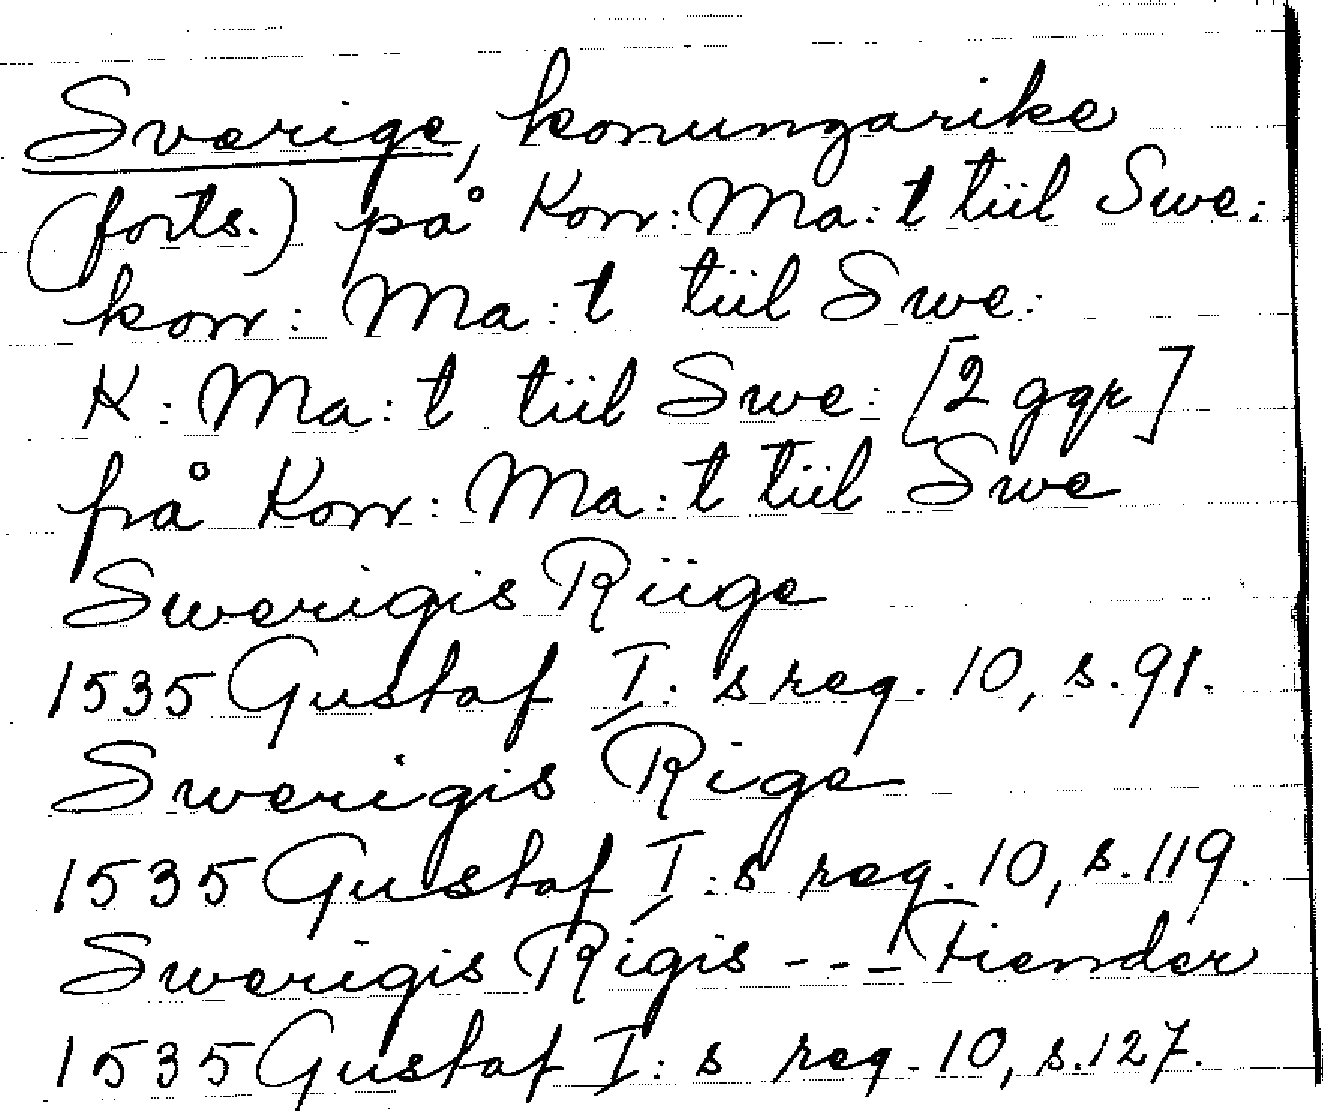 Sverige, konungarike
(forts.) på Konr: Ma: t tiil Swe:
konr: Ma: t tiil Swe:
K: Ma: t tiil Swe: [2 ggr]
frå Konr: Ma: t tiil Swe
Swerigis Riige
1535 Gustaf I: s reg. 10, s. 91.
Swerigis Rige
1535 Gustaf I: s reg. 10, s. 119.
Swerigis Rigis - - - Fiender
1535 Gustaf I: s reg. 10, s. 127.